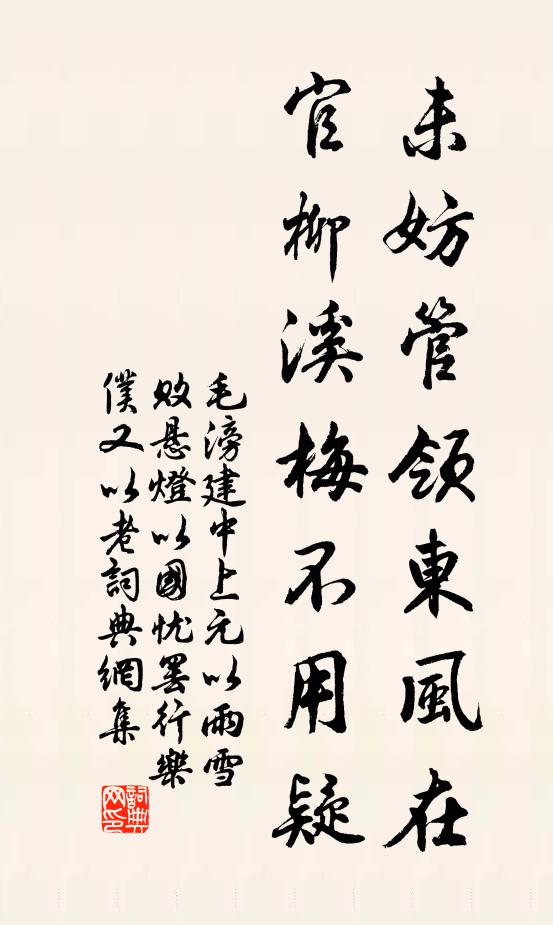 未妨管領東風在
官柳溪梅不用疑
毛滂建中上元以雨雪
敗懸燈以國忧罢行樂
僕又以老詞典網集
詞典
网印